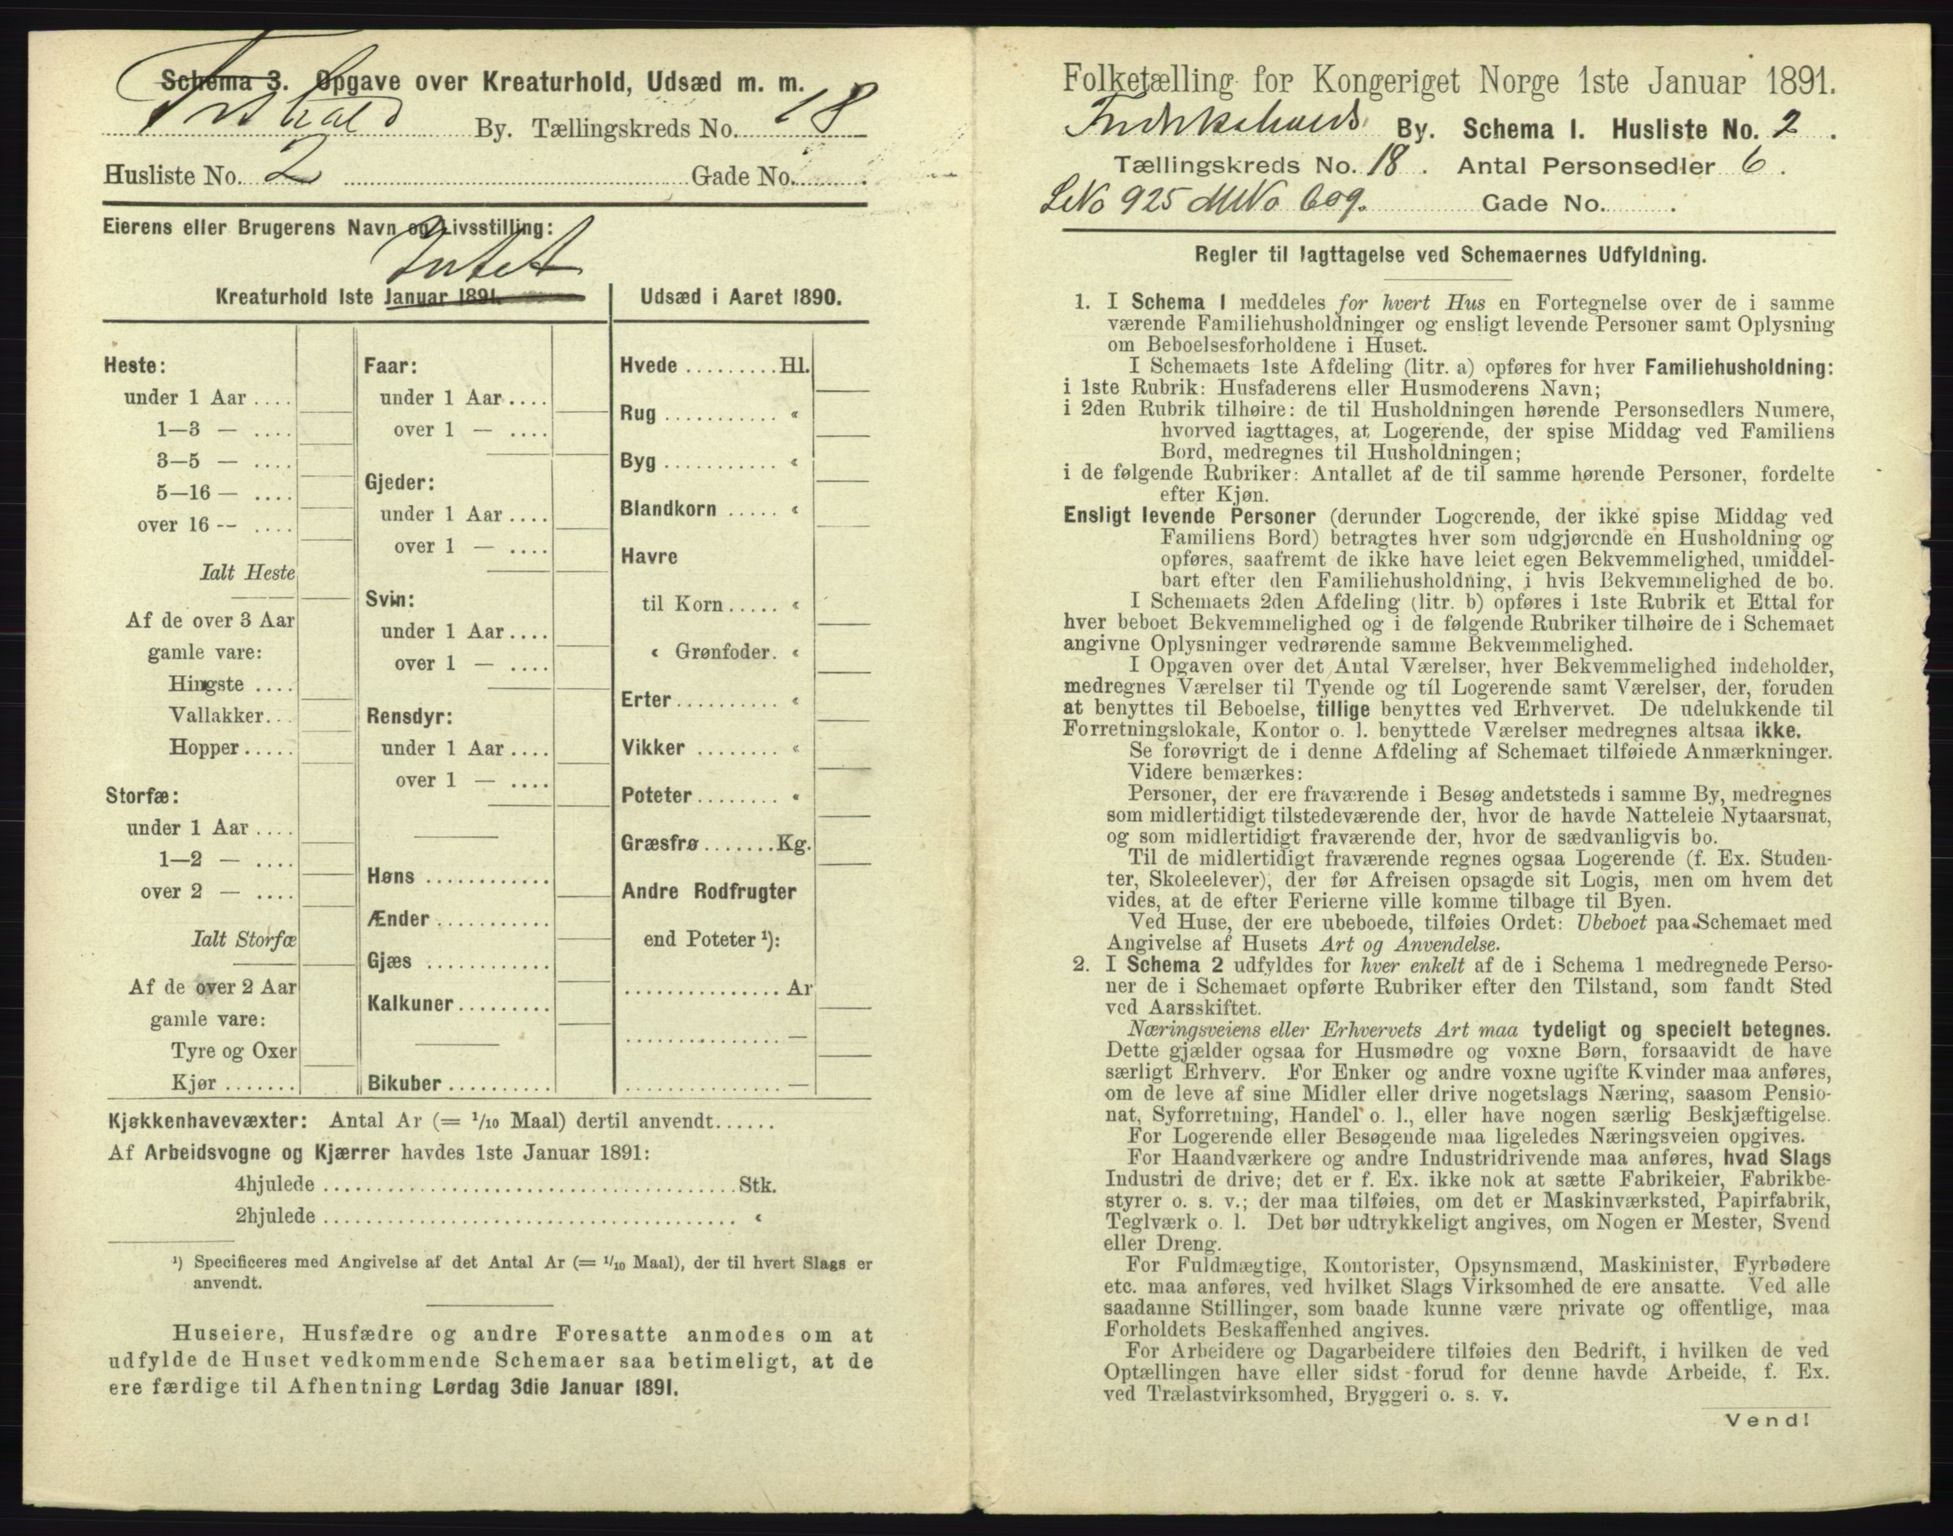 Schema 3. Opgave over Kreaturhold, Udsæd m. m.
Frhald By. Tællingskreds No. 18
Husliste No. 2 Gade No.
Eierens eller Brugerens Navn og Livsstilling:
Intet
Kreaturhold 1ste Januar 1891.
Heste:
under 1 Aar ....
1—3 — ....
3—5 — ....
5—16 — ....
over 16 -- ....
Ialt Heste
Af de over 3 Aar
gamle vare:
Hingste ....
Vallakker...
Hopper .....
Storfæ:
under 1 Aar ....
1—2 — ....
over 2 — ....
Ialt Storfæ
Af de over 2 Aar
gamle vare:
Tyre og Oxer
Kjør .......
Faar:
under 1 Aar ....
over 1 — ....
Gjeder:
under 1 Aar ....
over 1 — ....
Svin:
under 1 Aar ....
over 1 — ....
Rensdyr:
under 1 Aar ....
over 1 — ....
Høns ............
Ænder ...........
Gjæs ............
Kalkuner .........
Bikuber ..........
Udsæd i Aaret 1890.
Hvede ......... Hl.
Rug ........... «
Byg ........... «
Blandkorn ..... «
Havre
til Korn ..... «
« Grønfoder. «
Erter .......... «
Vikker ......... «
Poteter ........ «
Græsfrø ....... Kg.
Andre Rodfrugter
end Poteter ¹):
............... Ar
............... —
............... —
Kjøkkenhavevæxter: Antal Ar (= 1/10 Maal) dertil anvendt......
Af Arbeidsvogne og Kjærrer havdes 1ste Januar 1891:
4hjulede ........................................ Stk.
2hjulede ........................................ «
¹) Specificeres med Angivelse af det Antal Ar (= 1/10 Maal), der til hvert Slags er
anvendt.
Huseiere, Husfædre og andre Foresatte anmodes om at
udfylde de Huset vedkommende Schemaer saa betimeligt, at de
ere færdige til Afhentning Lørdag 3die Januar 1891.
Folketælling for Kongeriget Norge 1ste Januar 1891.
Fredrikshalds By. Schema 1. Husliste No. 2.
Tællingskreds No. 18. Antal Personsedler 6.
LNo 925 MNo 609. Gade No. .
Regler til Iagttagelse ved Schemaernes Udfyldning.
1. I Schema 1 meddeles for hvert Hus en Fortegnelse over de i samme
værende Familiehusholdninger og ensligt levende Personer samt Oplysning
om Beboelsesforholdene i Huset.
I Schemaets 1ste Afdeling (litr. a) opføres for hver Familiehusholdning:
i 1ste Rubrik: Husfaderens eller Husmoderens Navn;
i 2den Rubrik tilhøire: de til Husholdningen hørende Personsedlers Numere,
hvorved iagttages, at Logerende, der spise Middag ved Familiens
Bord, medregnes til Husholdningen;
i de følgende Rubriker: Antallet af de til samme hørende Personer, fordelte
efter Kjøn.
Ensligt levende Personer (derunder Logerende, der ikke spise Middag ved
Familiens Bord) betragtes hver som udgjørende en Husholdning og
opføres, saafremt de ikke have leiet egen Bekvemmelighed, umiddel-
bart efter den Familiehusholdning, i hvis Bekvemmelighed de bo.
I Schemaets 2den Afdeling (litr. b) opføres i 1ste Rubrik et Ettal for
hver beboet Bekvemmelighed og i de følgende Rubriker tilhøire de i Schemaet
angivne Oplysninger vedrørende samme Bekvemmelighed.
I Opgaven over det Antal Værelser, hver Bekvemmelighed indeholder,
medregnes Værelser til Tyende og til Logerende samt Værelser, der, foruden
at benyttes til Beboelse, tillige benyttes ved Erhvervet. De udelukkende til
Forretningslokale, Kontor o. l. benyttede Værelser medregnes altsaa ikke.
Se forøvrigt de i denne Afdeling af Schemaet tilføiede Anmærkninger.
Videre bemærkes:
Personer, der ere fraværende i Besøg andetsteds i samme By, medregnes
som midlertidigt tilstedeværende der, hvor de havde Natteleie Nytaarsnat,
og som midlertidigt fraværende der, hvor de sædvanligvis bo.
Til de midlertidigt fraværende regnes ogsaa Logerende (f. Ex. Studen-
ter, Skoleelever), der før Afreisen opsagde sit Logis, men om hvem det
vides, at de efter Ferierne ville komme tilbage til Byen.
Ved Huse, der ere ubeboede, tilføies Ordet: Ubeboet paa Schemaet med
Angivelse af Husets Art og Anvendelse.
2. I Schema 2 udfyldes for hver enkelt af de i Schema 1 medregnede Perso-
ner de i Schemaet opførte Rubriker efter den Tilstand, som fandt Sted
ved Aarsskiftet.
Næringsveiens eller Erhvervets Art maa tydeligt og specielt betegnes.
Dette gjælder ogsaa for Husmødre og voxne Børn, forsaavidt de have
særligt Erhverv. For Enker og andre voxne ugifte Kvinder maa anføres,
om de leve af sine Midler eller drive nogetslags Næring, saasom Pensio-
nat, Syforretning, Handel o. l., eller have nogen særlig Beskjæftigelse.
For Logerende eller Besøgende maa ligeledes Næringsveien opgives.
For Haandværkere og andre Industridrivende maa anføres, hvad Slags
Industri de drive; det er f. Ex. ikke nok at sætte Fabrikeier, Fabrikbe-
styrer o. s. v.; der maa tilføies, om det er Maskinværksted, Papirfabrik,
Teglværk o. l. Det bør udtrykkeligt angives, om Nogen er Mester, Svend
eller Dreng.
For Fuldmægtige, Kontorister, Opsynsmænd, Maskinister, Fyrbødere
etc. maa anføres, ved hvilket Slags Virksomhed de ere ansatte. Ved alle
saadanne Stillinger, som baade kunne være private og offentlige, maa
Forholdets Beskaffenhed angives.
For Arbeidere og Dagarbeidere tilføies den Bedrift, i hvilken de ved
Optællingen have eller sidst forud for denne havde Arbeide, f. Ex.
ved Trælastvirksomhed, Bryggeri o. s. v.
Vend!